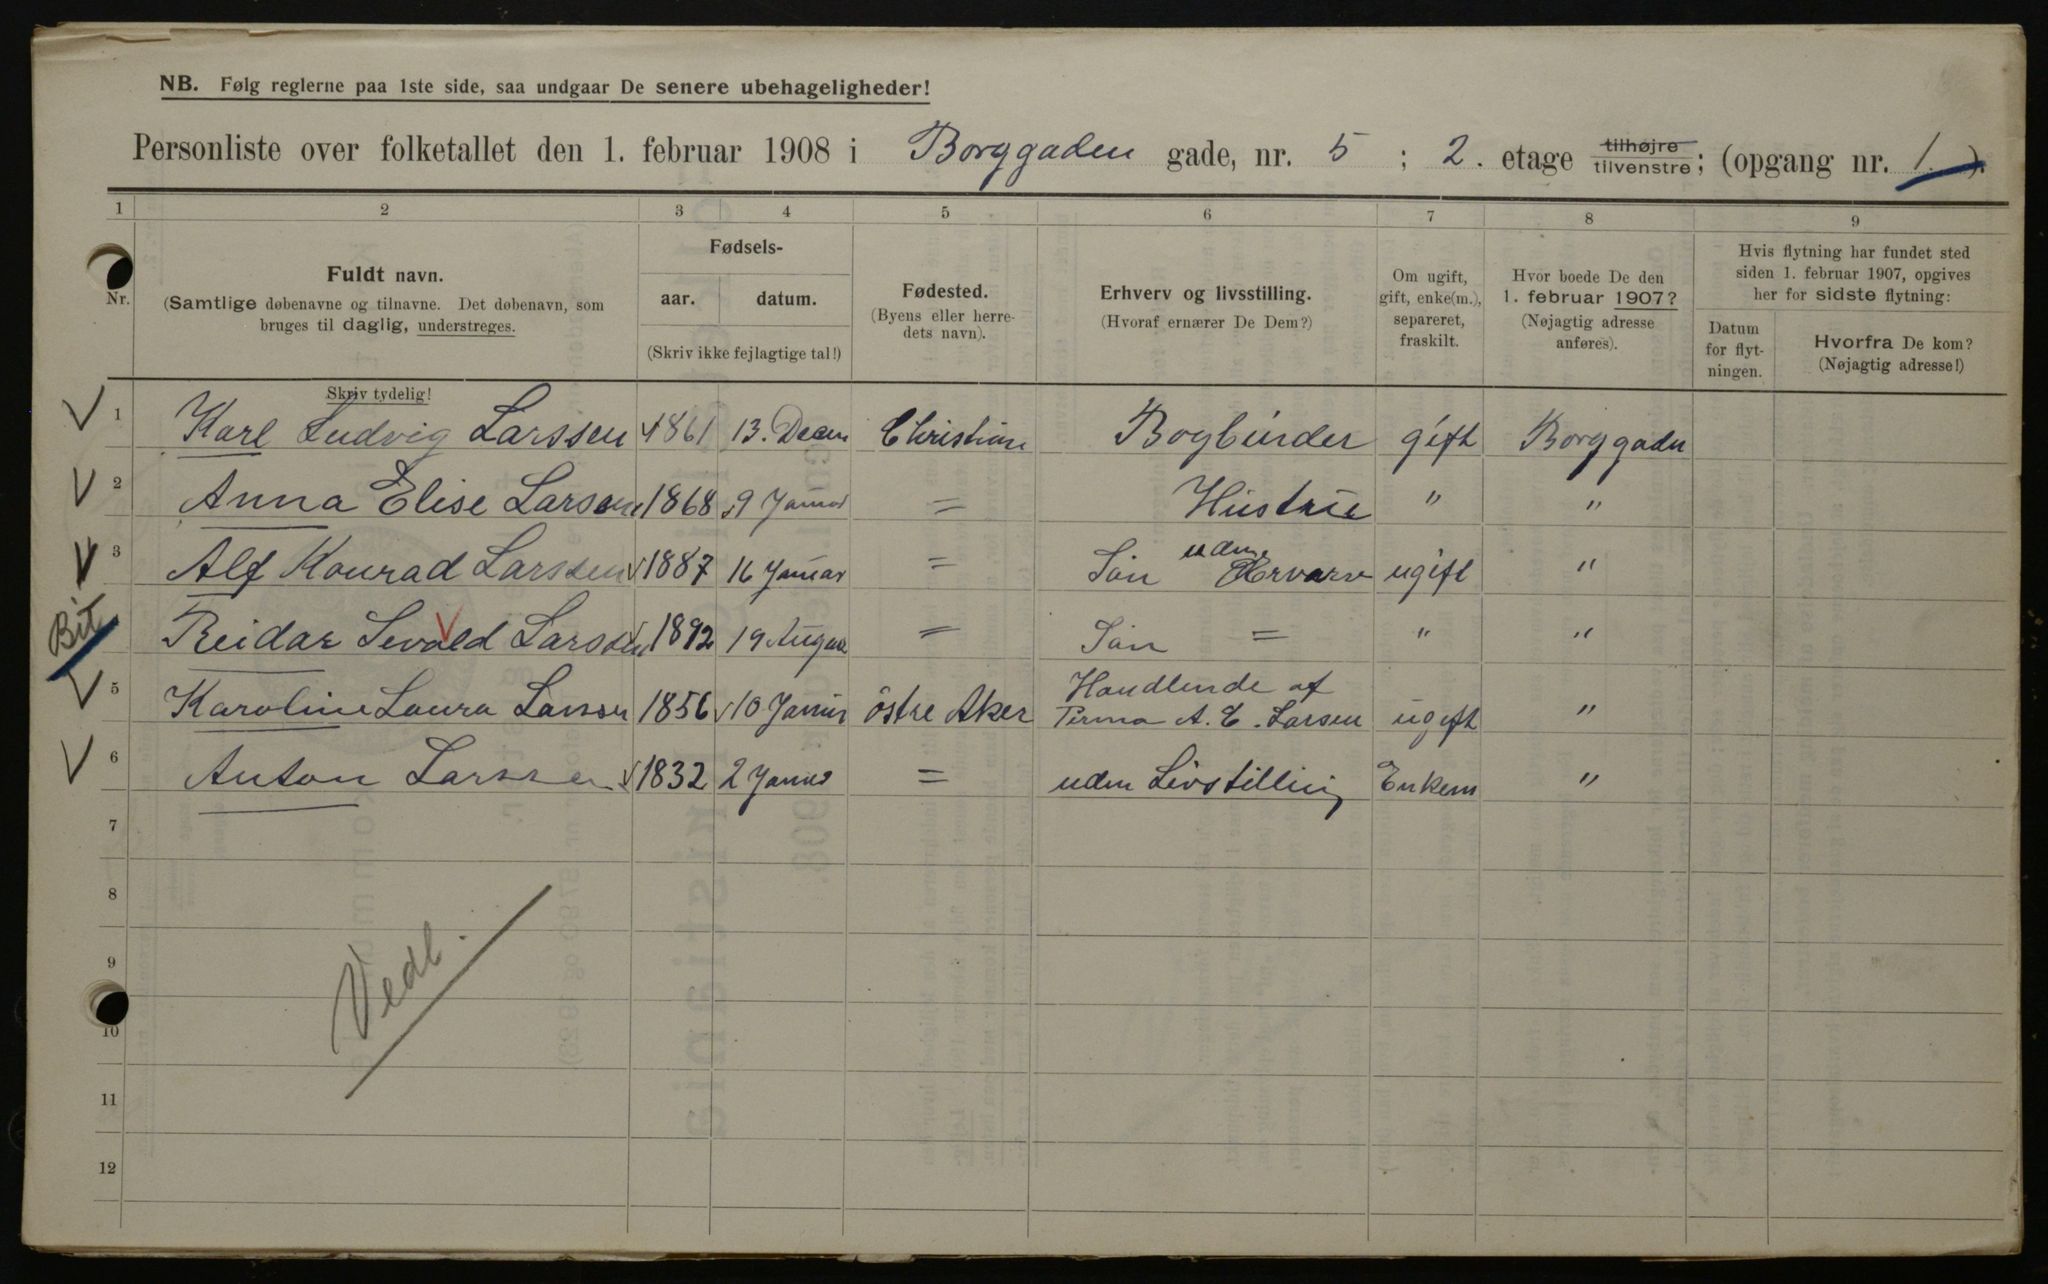 NB. Følg reglerne paa 1ste side, saa undgaar De senere ubehageligheder!
Personliste over folketallet den 1. februar 1908 i Borggaden gade, nr. 5 ; 2. etage tilhøjre tilvenstre; (opgang nr. 1. ).
1 2 3 4 5 6 7 8 9
Nr.
Fuldt navn.
(Samtlige døbenavne og tilnavne. Det døbenavn, som
bruges til daglig, understreges.
Skriv tydelig!
Fødsels-
aar. datum.
(Skriv ikke fejlagtige tal!)
Fødested.
(Byens eller herre-
dets navn).
Erhverv og livsstilling.
(Hvoraf ernærer De Dem?)
Om ugift,
gift, enke(m.),
separeret,
fraskilt.
Hvor boede De den
1. februar 1907?
(Nøjagtig adresse
anføres).
Hvis flytning har fundet sted
siden 1. februar 1907, opgives
her for sidste flytning:
Datum
for flyt-
ningen.
Hvorfra De kom?
(Nøjagtig adresse!)
1 Karl Ludvig Larssen 1861 13. Decem Christian Bogbinder gift Borggaden
2 Anna Elise Larsen 1868 9 Januar = Hustrue " "
3 Alf Konrad Larssen 1887 16 Januar = Sön uden Ervarv ugift "
Bit Reidar Sevald Larssen 1892 19 August = Sön = " "
5 Karoline Laura Larsen 1856 10 Januar östre Aker Handlende af
Firma A. E. Larsen ugift "
6 Anton Larssen 1832 2 Januar = uden Livstilling Enkem "
7
8
9
10
11
12
Vedl.